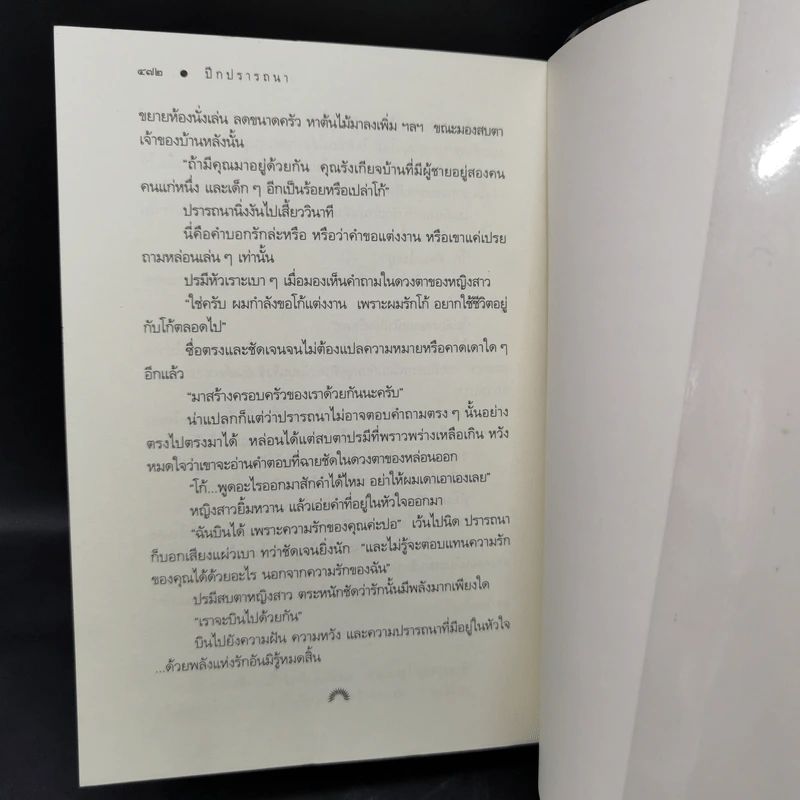 ๔๗๒ ● ปีกปรารถนา
ขยายห้องนั่งเล่น ลดขนาดครัว หาต้นไม้มาลงเพิ่ม ฯลฯ ขณะมองสบตา
เจ้าของบ้านหลังนั้น
“ถ้ามีคุณมาอยู่ด้วยกัน คุณรังเกียจบ้านที่มีผู้ชายอยู่สองคน
คนแก่หนึ่ง และเด็ก ๆ อีกเป็นร้อยหรือเปล่าโก้”
ปรารถนานิ่งงันไปเสี้ยววินาที
นี่คือคำบอกรักล่ะหรือ หรือว่าคำขอแต่งงาน หรือเขาแค่เปรย
ถามหล่อนเล่น ๆ เท่านั้น
ปรมีหัวเราะเบา ๆ เมื่อมองเห็นคำถามในดวงตาของหญิงสาว
“ใช่ครับ ผมกำลังขอโก้แต่งงาน เพราะผมรักโก้ อยากใช้ชีวิตอยู่
กับโก้ตลอดไป”
ซื่อตรงและชัดเจนจนไม่ต้องแปลความหมายหรือคาดเดาใด ๆ
อีกแล้ว
“มาสร้างครอบครัวของเราด้วยกันนะครับ”
น่าแปลกก็แต่ว่าปรารถนาไม่อาจตอบคำถามตรง ๆ นั้นอย่าง
ตรงไปตรงมาได้ หล่อนได้แต่สบตาปรมีที่พราวพร่างเหลือเกิน หวัง
หมดใจว่าเขาจะอ่านคำตอบที่ฉายชัดในดวงตาของหล่อนออก
“โก้...พูดอะไรออกมาสักคำได้ไหม อย่าให้ผมเดาเอาเองเลย”
หญิงสาวยิ้มหวาน แล้วเอ่ยคำที่อยู่ในหัวใจออกมา
“ฉันบินได้ เพราะความรักของคุณค่ะปอ” เว้นไปนิด ปรารถนา
ก็บอกเสียงแผ่วเบา ทว่าชัดเจนยิ่งนัก “และไม่รู้จะตอบแทนความรัก
ของคุณได้ด้วยอะไร นอกจากความรักของฉัน”
ปรมีสบตาหญิงสาว ตระหนักชัดว่ารักนั้นมีพลังมากเพียงใด
“เราจะบินไปด้วยกัน”
บินไปยังความฝัน ความหวัง และความปรารถนาที่มีอยู่ในหัวใจ
...ด้วยพลังแห่งรักอันมิรู้หมดสิ้น